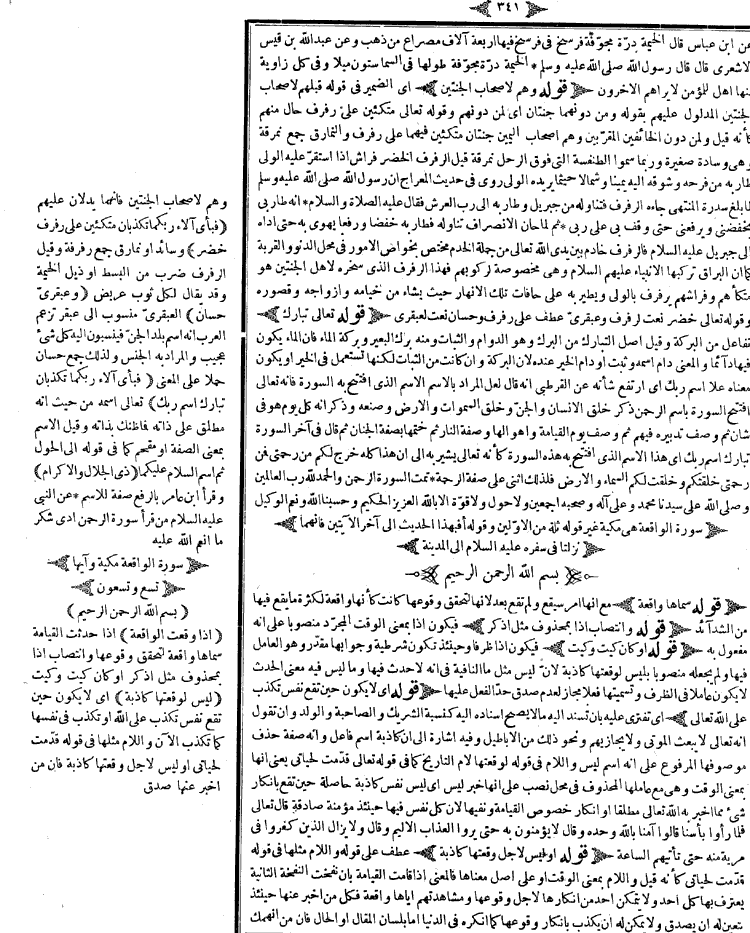 ٣٤١
عن ابن عباس قال الخيمة درّة مجوّفة فرسخ فى فرسخ فيها اربعة آلاف مصراع من ذهب وعن عبدالله بن قيس
الاشعرى قال قال رسول الله صلى الله عليه وسلم * الخيمة درّة مجوفة طولها فى السما ستون ميلا وفى كل زاوية
منها اهل للمؤمن لايراهم الاخرون قوله وهم لاصحاب الجنتين اى الضمير فى قوله قبلهم لاصحاب
الجنتين المدلول عليهم بقوله ومن دونهما جنتان اى لمن دونهم وقوله تعالى متكئين على رفرف حال منهم
كأنه قيل ولمن دون الخائفين المقرّبين وهم اصحاب اليمين جنتان متكئين فيهما على رفرف والنمارق جمع نمرقة
وهى وسادة صغيرة وربما سموا الطنفسة التى فوق الرحل نمرقة قيل الرفرف الخضر فراش اذا استقرّ عليه الولى
طار به من فرحه وشوقه اليه يمينا وشمالا حيثما يريده الولى روى فى حديث المعراج ان رسول الله صلى الله عليه وسلم
لما بلغ سدرة المنتهى جاءه الرفرف فتناوله من جبريل وطار به الى رب العرش فقال عليه الصلاة والسلام * انه طار بى
يخفضنى ويرفعنى حتى وقف بى على ربى * ثم لما حان الانصراف تناوله فطار به خفضا ورفعا يهوى به حتى اداه
الى جبريل عليه السلام فالرفرف خادم بين يدى الله تعالى من جملة الخدم مختص بخواض الامور فى محل الدنو والقربة
كما ان البراق تركبها الانبياء عليهم السلام وهى مخصوصة بركوبهم فهذا الرفرف الذى سخره لاهل الجنتين هو
متكأهم وفراشهم يرفرف بالولى ويطير به على حافات تلك الانهار حيث يشاء من خيامه وازواجه وقصوره
وقوله تعالى خضر نعت لرفرف وعبقرىّ عطف على رفرف وحسان نعت لعبقرى قوله تعالى تبارك
تفاعل من البركة وقيل اصل التبارك من البرك وهو الدوام والثبات ومنه برك البعير وبركة الماء فان الماء يكون
فيها دآئما والمعنى دام اسمه وثبت او دام الخير عنده لان البركة وان كانت من الثبات لكنها تستعمل فى الخير او يكون
معناه علا اسم ربك اى ارتفع شأنه عن القرطبى انه قال لعل المراد بالاسم الاسم الذى افتتح به السورة فانه تعالى
افتتح السورة باسم الرحمن ذكر خلق الانسان والجنّ وخلق السموات والارض وصنعه وذكر انه كل يوم هو فى
شان ثم وصف تدبيره فيهم ثم وصف يوم القيامة واهوالها وصفة النار ثم ختمها بصفة الجنان ثم قال فى آخر السورة
تبارك اسم ربك اى هذا الاسم الذى افتتح به هذه السورة كأنه تعالى يشير به الى ان هذا كله خرج لكم من رحمتى فمن
رحمتى خلقتكم وخلقت لكم السماء والارض فلذلك اثنى على صفة الرحمة * تمت السورة الرحمن والحمد لله رب العالمين
وصلى الله على سيدنا محمد وعلى آله وصحبه اجمعين ولا حول ولا قوة الا بالله العزيز الحكيم وحسبنا الله ونعم الوكيل
سورة الواقعة هى مكية غير قوله ثلة من الاوّلين وقوله أفبهذا الحديث الى آخر الآيتين فانهما
نزلتا فى سفره عليه السلام الى المدينة
بسم الله الرحمن الرحيم
قوله سماها واقعة مع انها امر سيقع ولم تقع بعد لانها لتحقق وقوعها كانت كأنها واقعة لكثرة ما يقع فيها
من الشدآئد قوله وانتصاب اذا بمحذوف مثل اذكر فيكون اذا بمعنى الوقت المجرّد منصوبا على انه
مفعول به قوله او كان كيت وكيت فيكون اذا ظرفا وحينئذ تكون شرطية وجوابها مقدر وهو العامل
فيها ولم يجعله منصوبا بليس لوقعتها كاذبة لان ليس مثل ما النافية فى انه لاحدث فيها وما ليس فيه معنى الحدث
لا يكون عاملا فى الظرف وتسميتها فعلا مجاز لعدم صدق حدّ الفعل عليها قوله اى لايكون حين تقع نفس تكذب
على الله تعالى اى تفترى عليه بان تسند اليه مالا يصح اسناده اليه كنسبة الشريك والصاحبة والولد وان تقول
انه تعالى لا يبعث الموتى ولا يجازيهم ونحو ذلك من الاباطيل وفيه اشارة الى ان كاذبة اسم فاعل وانه صفة حذف
موصوفها المرفوع على انه اسم ليس واللام فى قوله لوقعتها لام التاريخ كما فى قوله تعالى قدّمت لحياتى يعنى انها
بمعنى الوقت وهى مع عاملها المحذوف فى محل نصب على انها خبر ليس اى ليس نفس كاذبة حاصلة حين تقع بانكار
شئ مما اخبر به الله تعالى مطلقا او انكار خصوص القيامة ونفيها لان كل نفس فيها حينئذ مؤمنة صادقة قال تعالى
فلما رأوا بأسنا قالوا آمنا بالله وحده وقال لا يؤمنون به حتى يروا العذاب الاليم وقال ولا يزال الذين كفروا فى
مرية منه حتى تأتيهم الساعة قوله او ليس لاجل وقعتها كاذبة عطف على قوله واللام مثلها فى قوله
قدّمت لحياتى كأنه قيل واللام بمعنى الوقت او على اصل معناها فالمعنى اذا قامت القيامة بان نفخت النفخة الثانية
يعترف بها كل احد ولا يمكن احد من انكارها لاجل وقوعها ومشاهدتهم اياها واقعة فكل من اخبر عنها حينئذ
تعين له ان يصدق ولا يمكن له ان يكذب بانكار وقوعها كما انكره فى الدنيا اما بلسان المقال او الحال فان من انهمك
وهم لاصحاب الجنتين فانهما يدلان عليهم
(فبأى آلاء ربكما تكذبان متكئين على رفرف
خضر) وسائد او نمارق جمع رفرفة وقيل
الرفرف ضرب من البسط او ذيل الخيمة
وقد يقال لكل ثوب عريض (وعبقرىّ
حسان) العبقرىّ منسوب الى عبقر تزعم
العرب انه اسم بلد الجنّ فينسبون اليه كل شئ
عجيب والمراد به الجنس ولذلك جمع حسان
حملا على المعنى (فبأى آلاء ربكما تكذبان
تبارك اسم ربك) تعالى اسمه من حيث انه
مطلق على ذاته فاظنك بذاته وقيل الاسم
بمعنى الصفة او مقحم كما فى قوله الى الحول
ثم اسم السلام عليكما (ذى الجلال والاكرام)
وقرأ ابن عامر بالرفع صفة للاسم * عن النبى
عليه السلام من قرأ سورة الرحمن ادى شكر
ما انعم الله عليه
سورة الواقعة مكية وآيها
تسع وتسعون
(بسم الله الرحمن الرحيم)
(اذا وقعت الواقعة) اذا حدثت القيامة
سماها واقعة لتحقق وقوعها وانتصاب اذا
بمحذوف مثل اذكر او كان كيت وكيت
(ليس لوقعتها كاذبة) اى لايكون حين
تقع نفس تكذب على الله او تكذب فى نفسها
كما تكذب الآن واللام مثلها فى قوله قدّمت
لحياتى او ليس لاجل وقعتها كاذبة فان من
اخبر عنها صدق